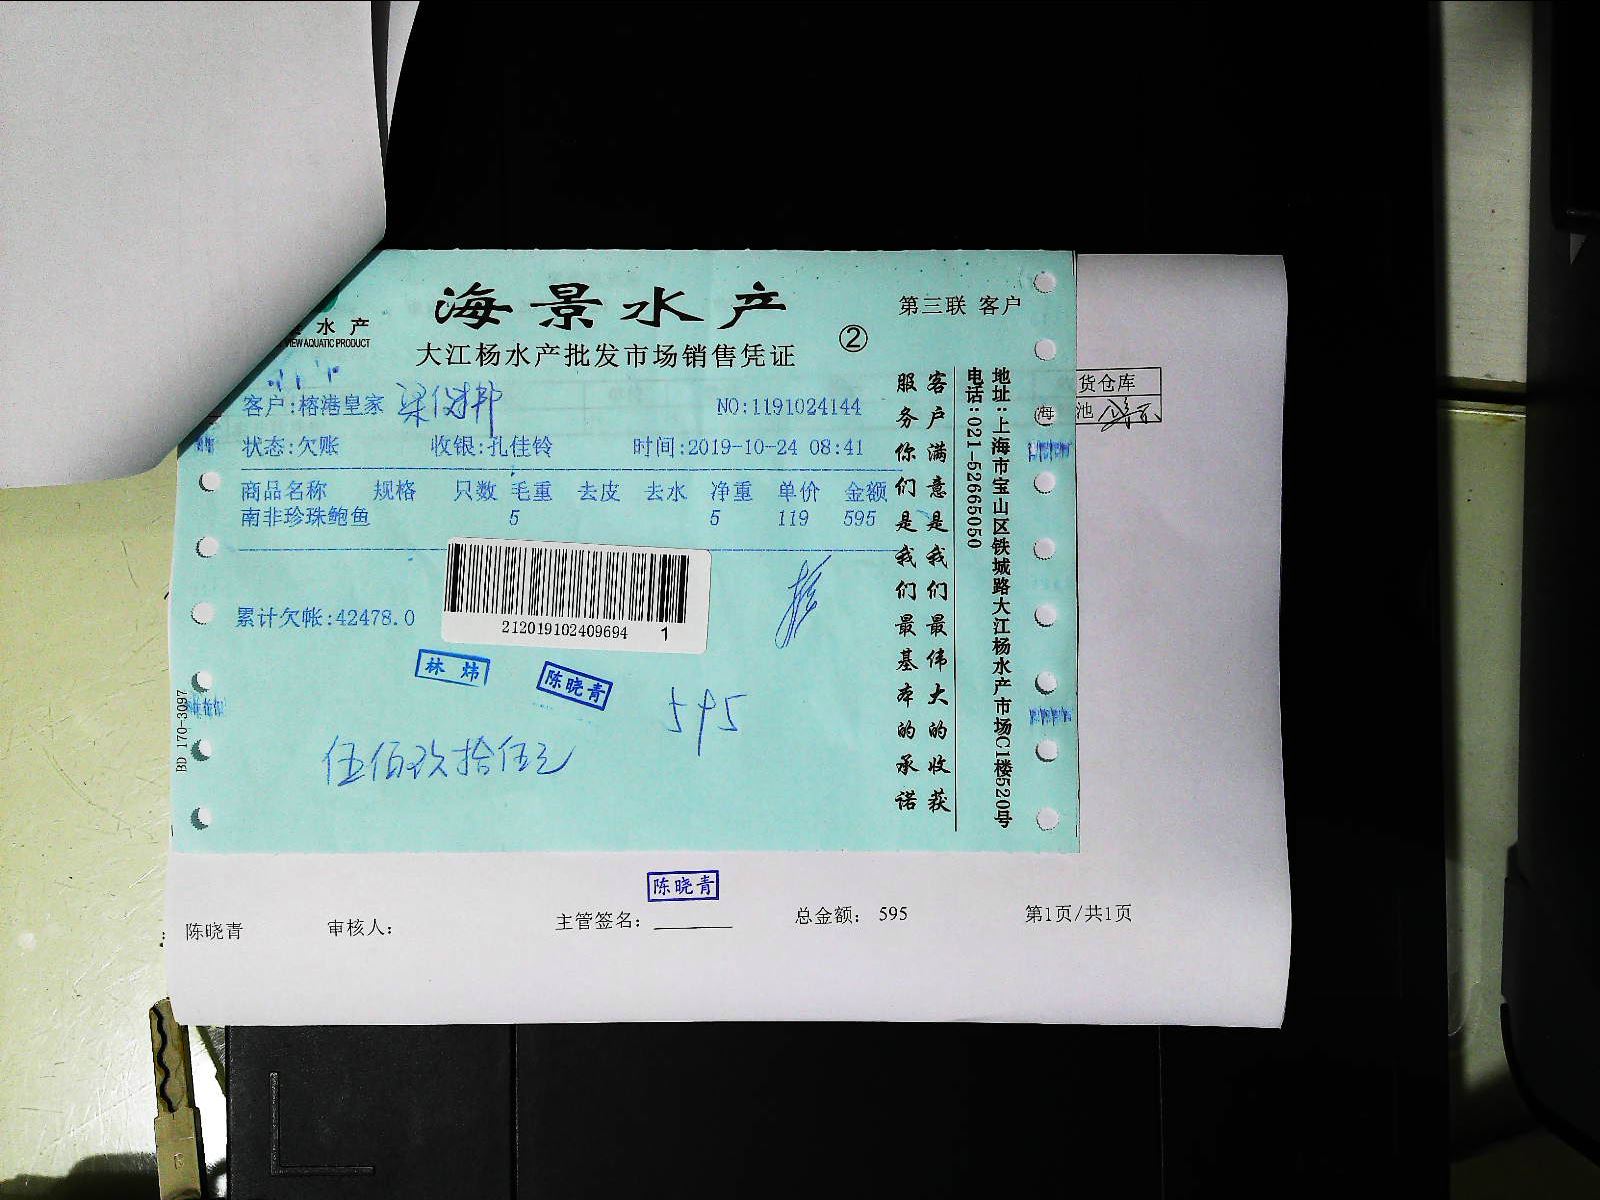 海景水产
第三联 客户
水产
VIEW AQUATIC PRODUCT
大江杨水产批发市场销售凭证
②
客户:榕港皇家
NO:1191024144
状态:欠账 收银:孔佳铃 时间:2019-10-24 08:41
商品名称 规格 只数 毛重 去皮 去水 净重 单价 金额
南非珍珠鲍鱼 5 5 119 595
212019102409694 1
累计欠帐:42478.0
林炜
陈晓青
595
伍佰玖拾伍元
BD 170-3097
客户满意是我们最伟大的收获
服务你们是我们最基本的承诺
地址:上海市宝山区铁城路大江杨水产市场C1楼520号
电话:021-52665050
货仓库
海
池
陈晓青
陈晓青 审核人: 主管签名: 总金额: 595 第1页/共1页